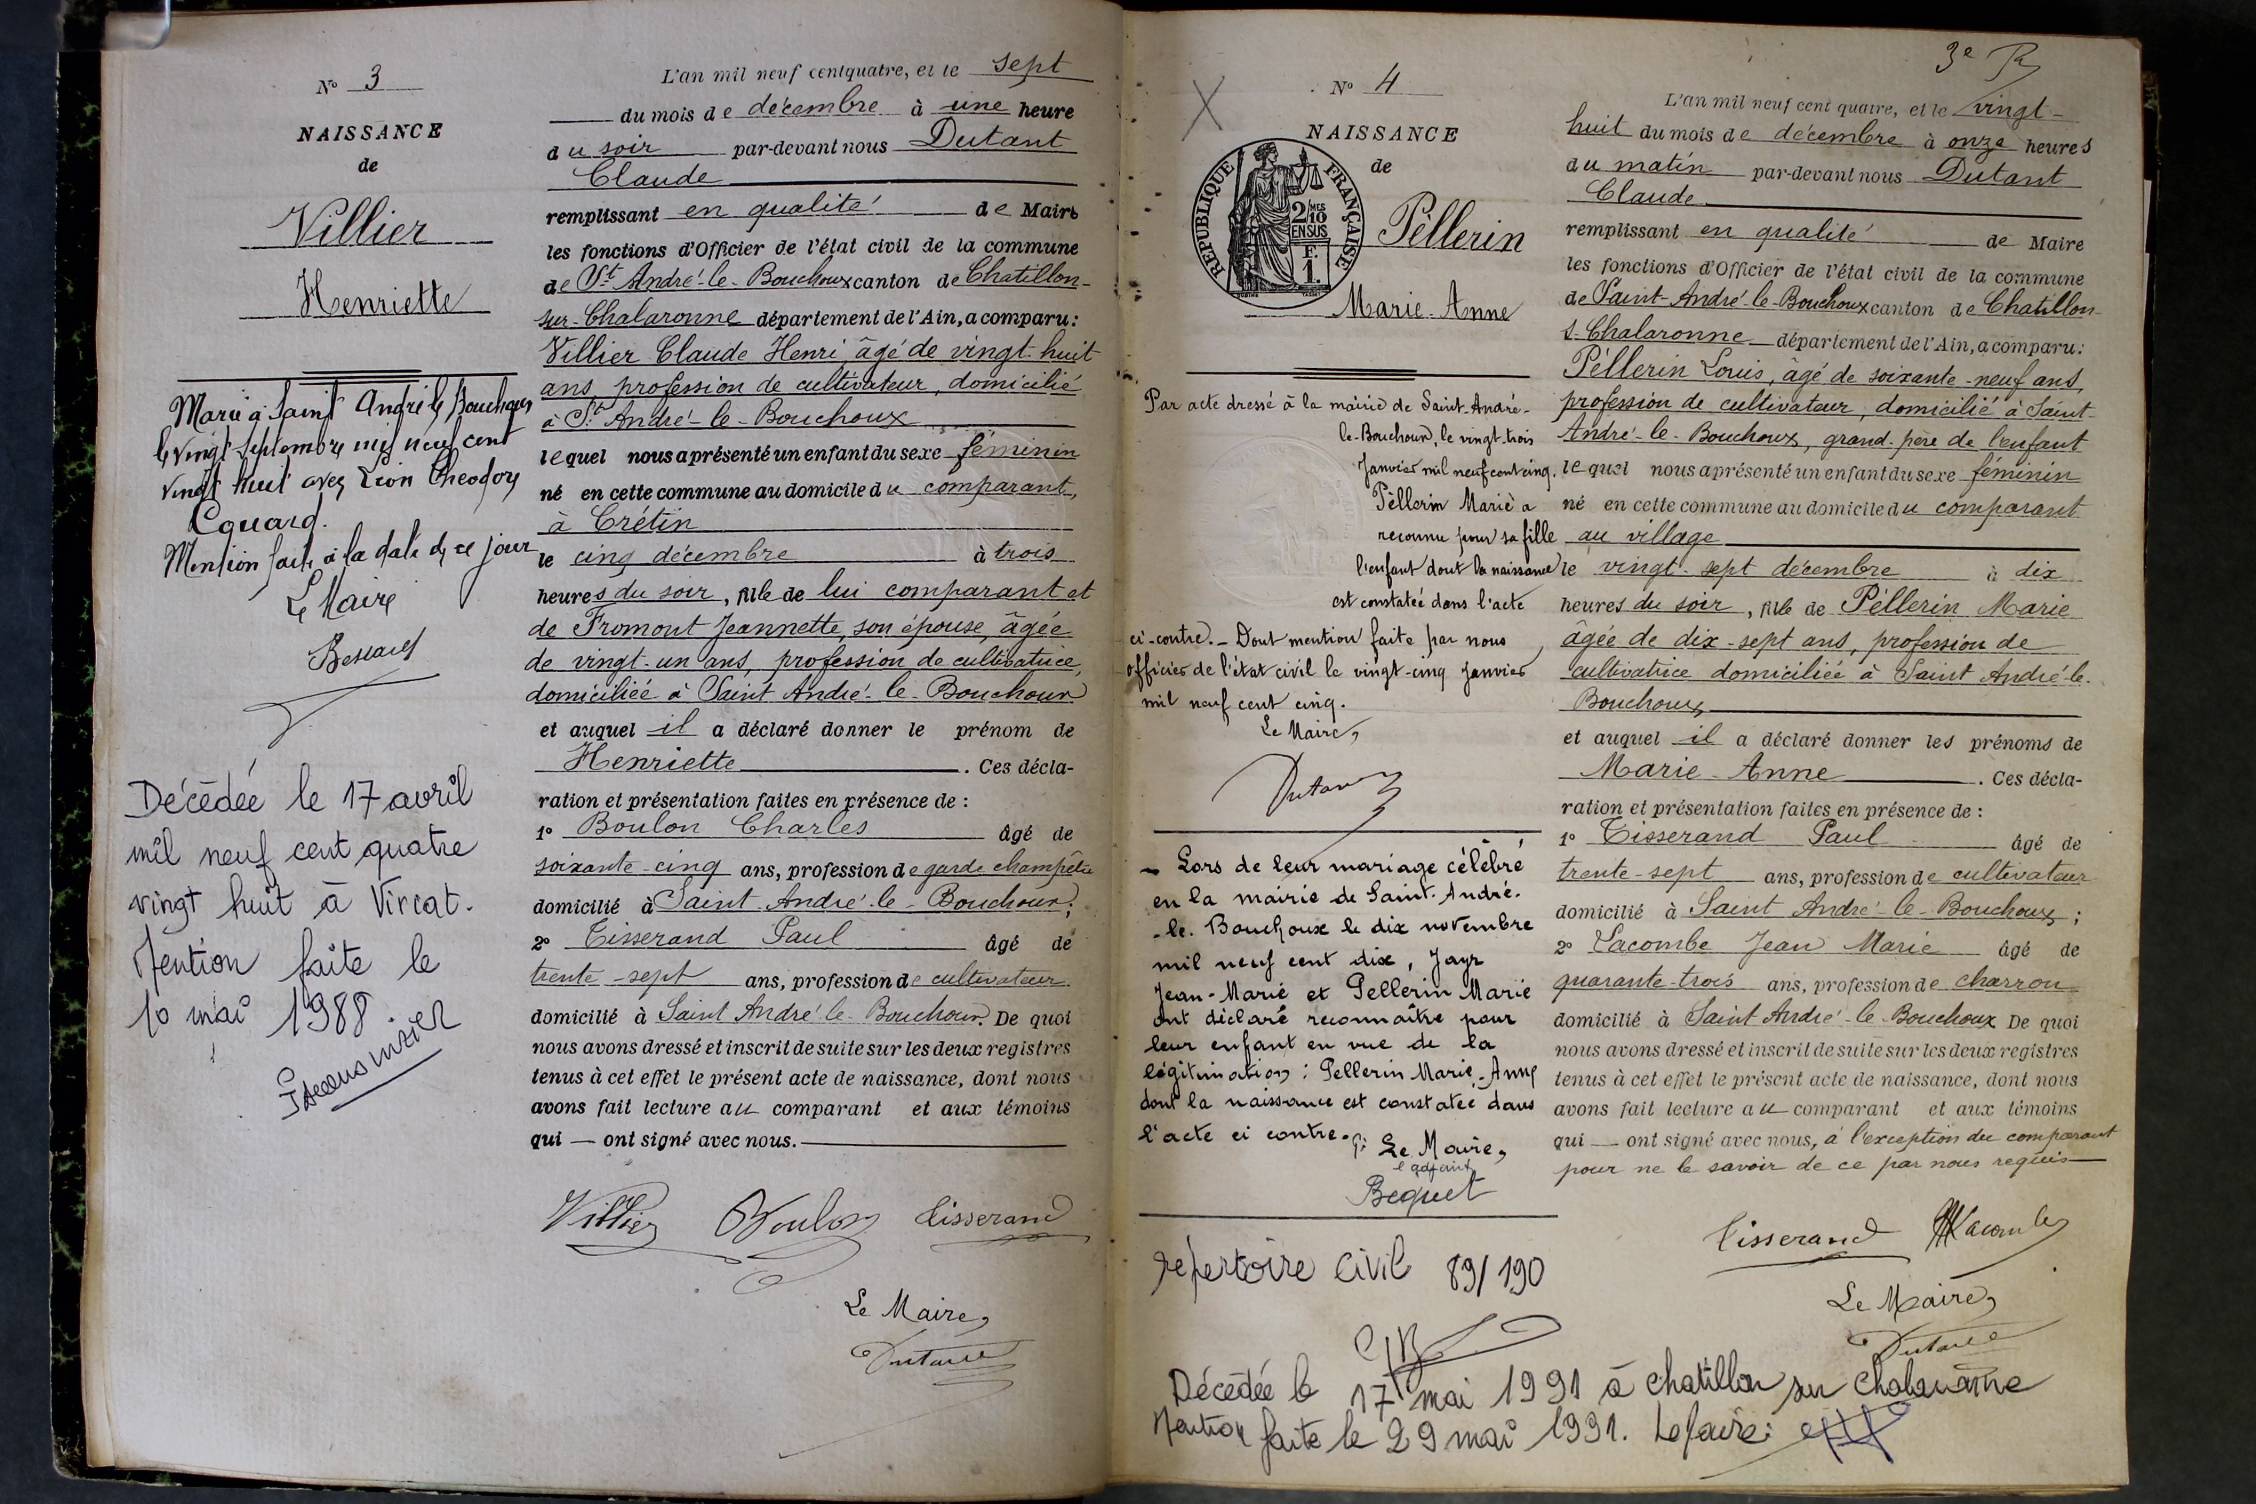 N° 3
NAISSANCE
de
Villier
Henriette
Marié à Saint André le Bouchoux
le vingt septembre mil neuf cent
vingt huit avec Léon Theodore
Mention faite à la date de ce jour
Le Maire
Décédée le 17 avril
mil neuf cent quatre
vingt huit à Viriat.
Mention faite le
10 mai 1988
L'an mil neuf cent quatre, et le sept
du mois de décembre à une heure
du soir par-devant nous Dutant
Claude
remplissant en qualité de Maire
les fonctions d'Officier de l'état civil de la commune
de St André-le-Bouchoux canton de Chatillon-
sur-Chalaronne département de l'Ain, a comparu :
Villier Claude Henri, âgé de vingt-huit
ans profession de cultivateur, domicilié
à St André-le-Bouchoux
lequel nous a présenté un enfant du sexe féminin
né en cette commune au domicile du comparant,
à Crétin
le cinq décembre à trois
heures du soir, fille de lui comparant et
de Fromont Jeannette, son épouse, âgée
de vingt-un ans, profession de cultivatrice,
domiciliée à Saint André-le-Bouchoux
et auquel il a déclaré donner le prénom de
Henriette. Ces décla-
ration et présentation faites en présence de :
1° Boulon Charles âgé de
soixante-cinq ans, profession de garde champêtre
domicilié à Saint André-le-Bouchoux;
2° Tisserand Paul âgé de
trente-sept ans, profession de cultivateur
domicilié à Saint André-le-Bouchoux. De quoi
nous avons dressé et inscrit de suite sur les deux registres
tenus à cet effet le présent acte de naissance, dont nous
avons fait lecture au comparant et aux témoins
qui — ont signé avec nous.
Villier Boulon Tisserand
Le Maire,
Dutant
3e R
N° 4
NAISSANCE
de
REPUBLIQUE FRANÇAISE
2/10 MES
EN SUS
F.
1.
Pèllerin
Marie-Anne
Par acte dressé à la mairie de Saint-André-
le-Bouchoux, le vingt-trois
Janvier mil neuf cent cinq,
Pèllerin Marie a
reconnu pour sa fille
l'enfant dont la naissance
est constatée dans l'acte
ci-contre. – Dont mention faite par nous,
officier de l'état civil le vingt-cinq Janvier
mil neuf cent cinq.
Le Maire,
Dutant
– Lors de leur mariage célébré
en la mairie de Saint-André-
-le-Bouchoux le dix novembre
mil neuf cent dix, Jayr
Jean-Marie et Pellerin Marie
ont déclaré reconnaître pour
leur enfant en vue de la
légitimation : Pellerin Marie-Anne
dont la naissance est constatée dans
l'acte ci contre.
P. Le Maire,
l'adjoint
Bequet
répertoire civil 89/190
Décédée le 17 mai 1991 à chatillon sur chalaronne
Mention faite le 29 mai 1991. Le Maire:
L'an mil neuf cent quatre, et le vingt-
huit du mois de décembre à onze heures
du matin par-devant nous Dutant
Claude
remplissant en qualité de Maire
les fonctions d'Officier de l'état civil de la commune
de Saint-André-le-Bouchoux canton de Chatillon-
s-Chalaronne département de l'Ain, a comparu :
Pèllerin Louis, âgé de soixante-neuf ans,
profession de cultivateur, domicilié à Saint-
André-le-Bouchoux, grand-père de l'enfant
lequel nous a présenté un enfant du sexe féminin
né en cette commune au domicile du comparant
au village
le vingt-sept décembre à dix
heures du soir, fille de Pèllerin Marie
âgée de dix-sept ans, profession de
cultivatrice domiciliée à Saint André-le-
Bouchoux
et auquel il a déclaré donner les prénoms de
Marie-Anne. Ces décla-
ration et présentation faites en présence de :
1° Tisserand Paul âgé de
trente-sept ans, profession de cultivateur
domicilié à Saint André-le-Bouchoux;
2° Lacombe Jean Marie âgé de
quarante-trois ans, profession de charron
domicilié à Saint André-le-Bouchoux De quoi
nous avons dressé et inscrit de suite sur les deux registres
tenus à cet effet le présent acte de naissance, dont nous
avons fait lecture au comparant et aux témoins
qui — ont signé avec nous, à l'exception du comparant
pour ne le savoir de ce par nous requis
Tisserand Lacombe
Le Maire,
Dutant